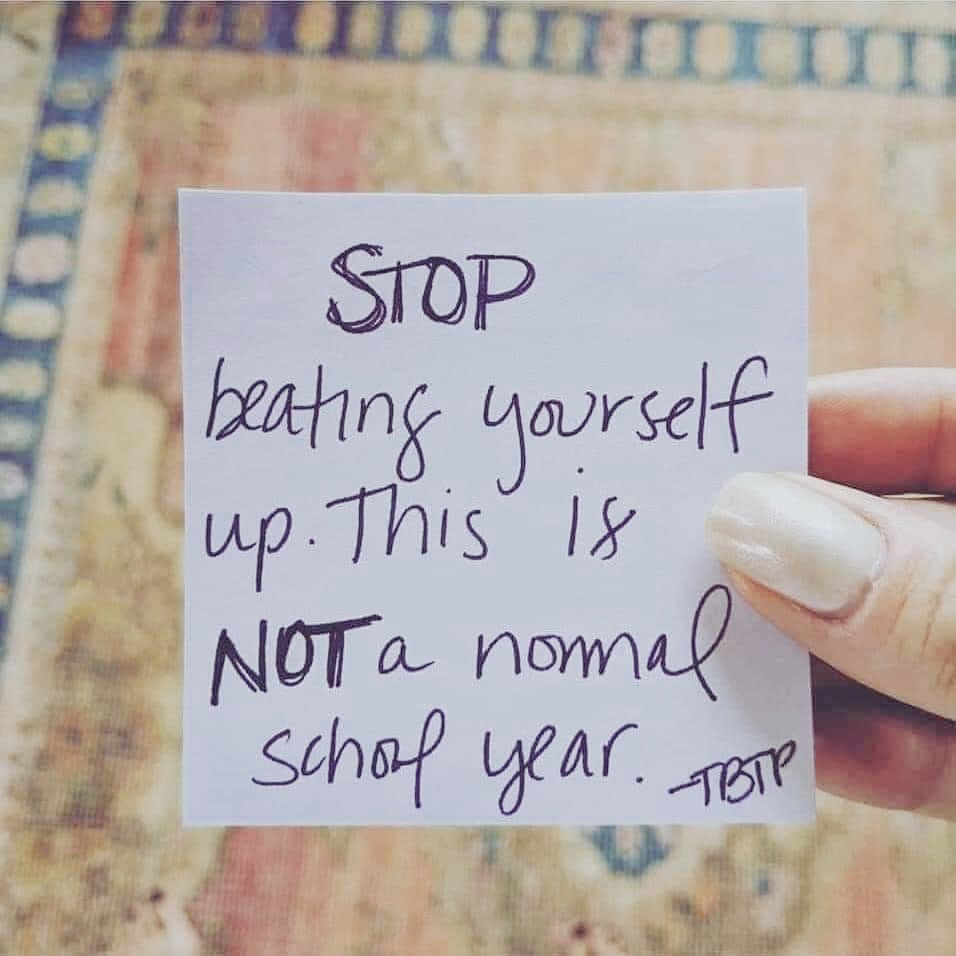 STOP
beating yourself
up. This is
NOT a normal
school year.
-TBTP